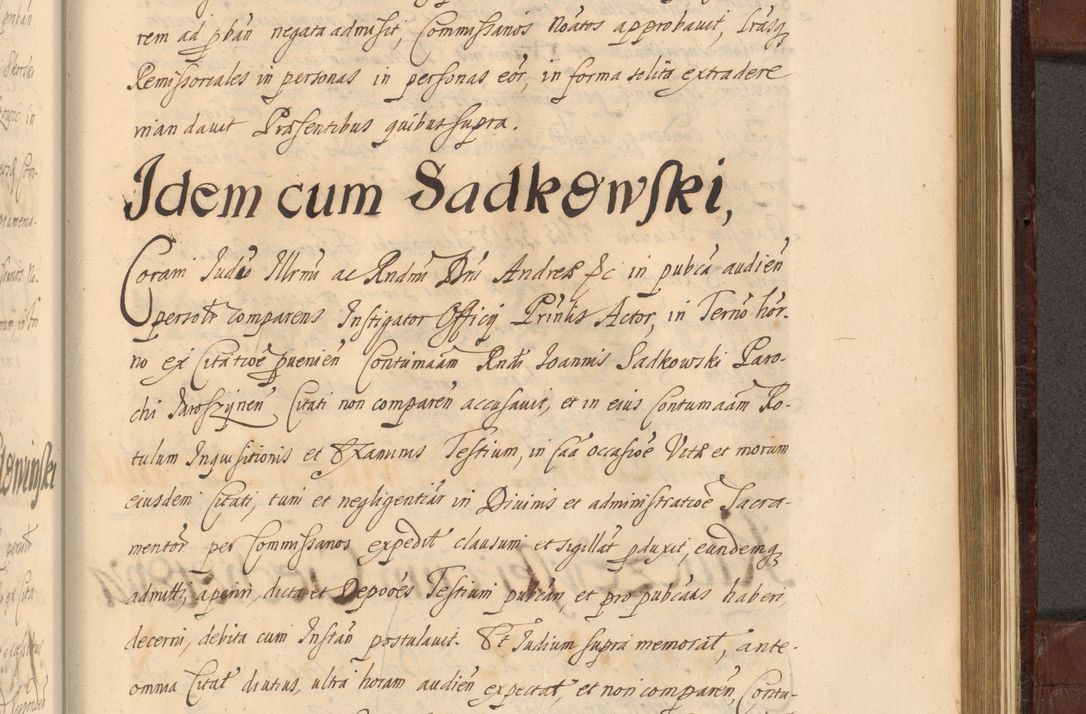 rem ad pban negata admisit, Commissanos Noatos approbavit, Lrasq
Remissoriales in personas in personas eor, in forma solita extradere
man davit Præsentibus quibus supra.
Idem cum Sadkowski,
Coram Judio Illrmi ac Rndmi Dni Andreæ pc in pubca audien
persolr comparens Instigator Officij Prinlis Actor, in Termo hor-
no ex Citatioe pvenien Contumaām Rndi Joannis Sadkowski Paro-
chi Jaroszynen Citati non comparen accusavit, et in eius Contumaām Ro-
tulum Inquisitionis et Examinis Testium, in Caa occasioe Vitæ et morum
eiusdem Citati, tum et negligentiar in Divinis et administratioe Sacra-
mentor per Commissanos expedit clausum et sigillat pduxit, eundemq
admitti, aperiri, dicta et Depoões Testium pubcan, et pro pubcatis haberi,
decerni, debita cum Instan postulavit. Et Judium supra memorat, ante-
omnia Citat diutius, ultra horam audien expectat, et non comparen, Contu-